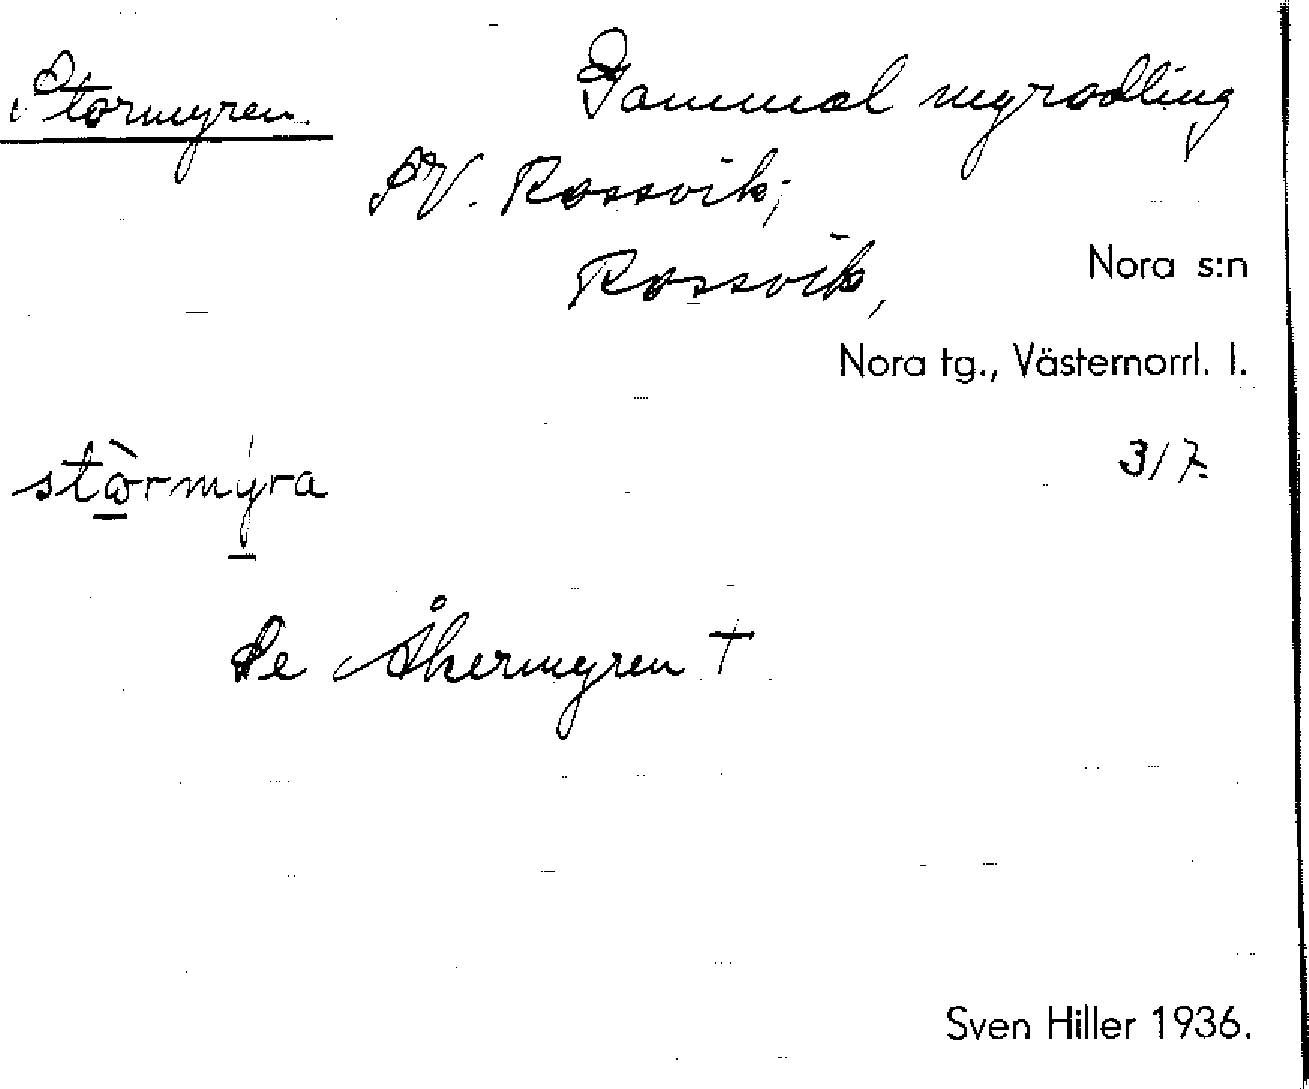 Stormyren. Gammal myrodling
SV. Rossvik;
Rossvik, Nora s:n
Nora tg., Västernorrl. l.
stòrmýra 3/7.
Se Åkermyren †
Sven Hiller 1936.